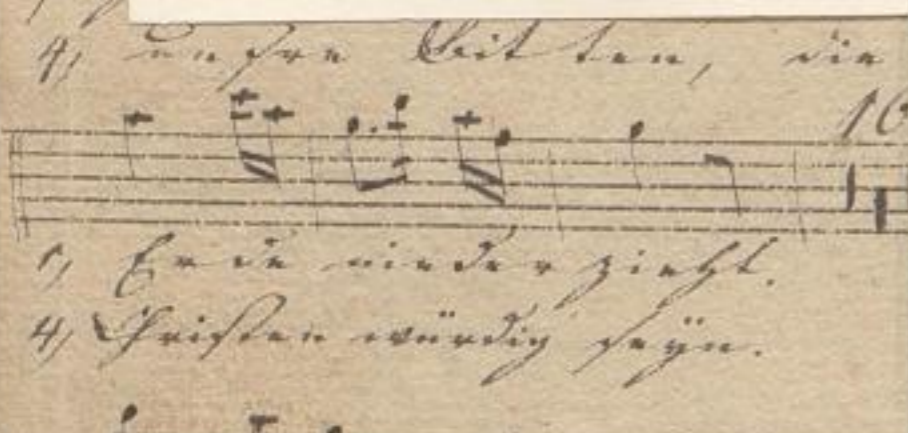 4, unsre Bitten, die
16
1, Erde niederzieht.
4, Christen würdig seyn.